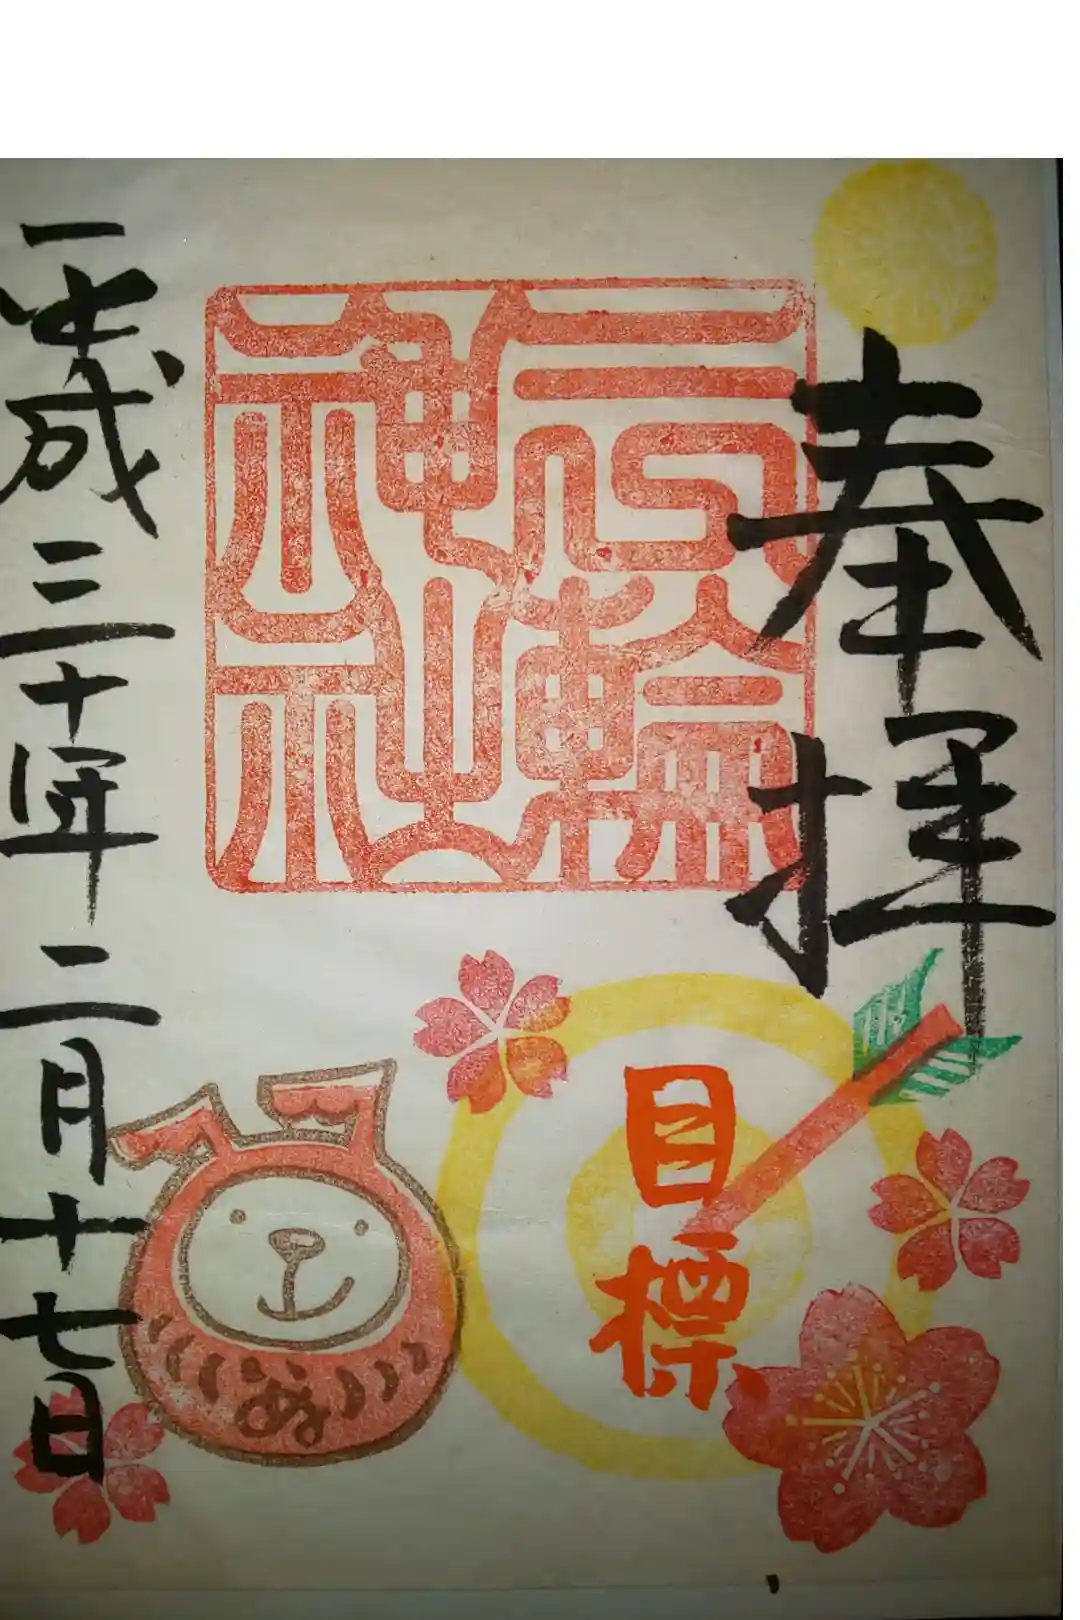 奉拝
三輪
神社
目標
平成三十年二月十七日